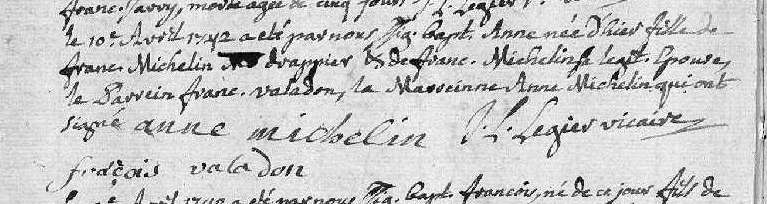 franc. Savoy, morte agée de cinq jours J. L. Legier
le 10e. Avril 1742 a eté par nous Sig. bapt. Anne née d'hier fille de
franc. Michelin drappier & de franc. Michelin sa legit. Epouse,
le Parrein franc. valadon, la Marreinne Anne Michelin qui ont
signé anne michelin J. L. Legier vicaire
francois valadon
Avril 1742 a eté par nous Sig. bapt. francois, né de ce jour fils de